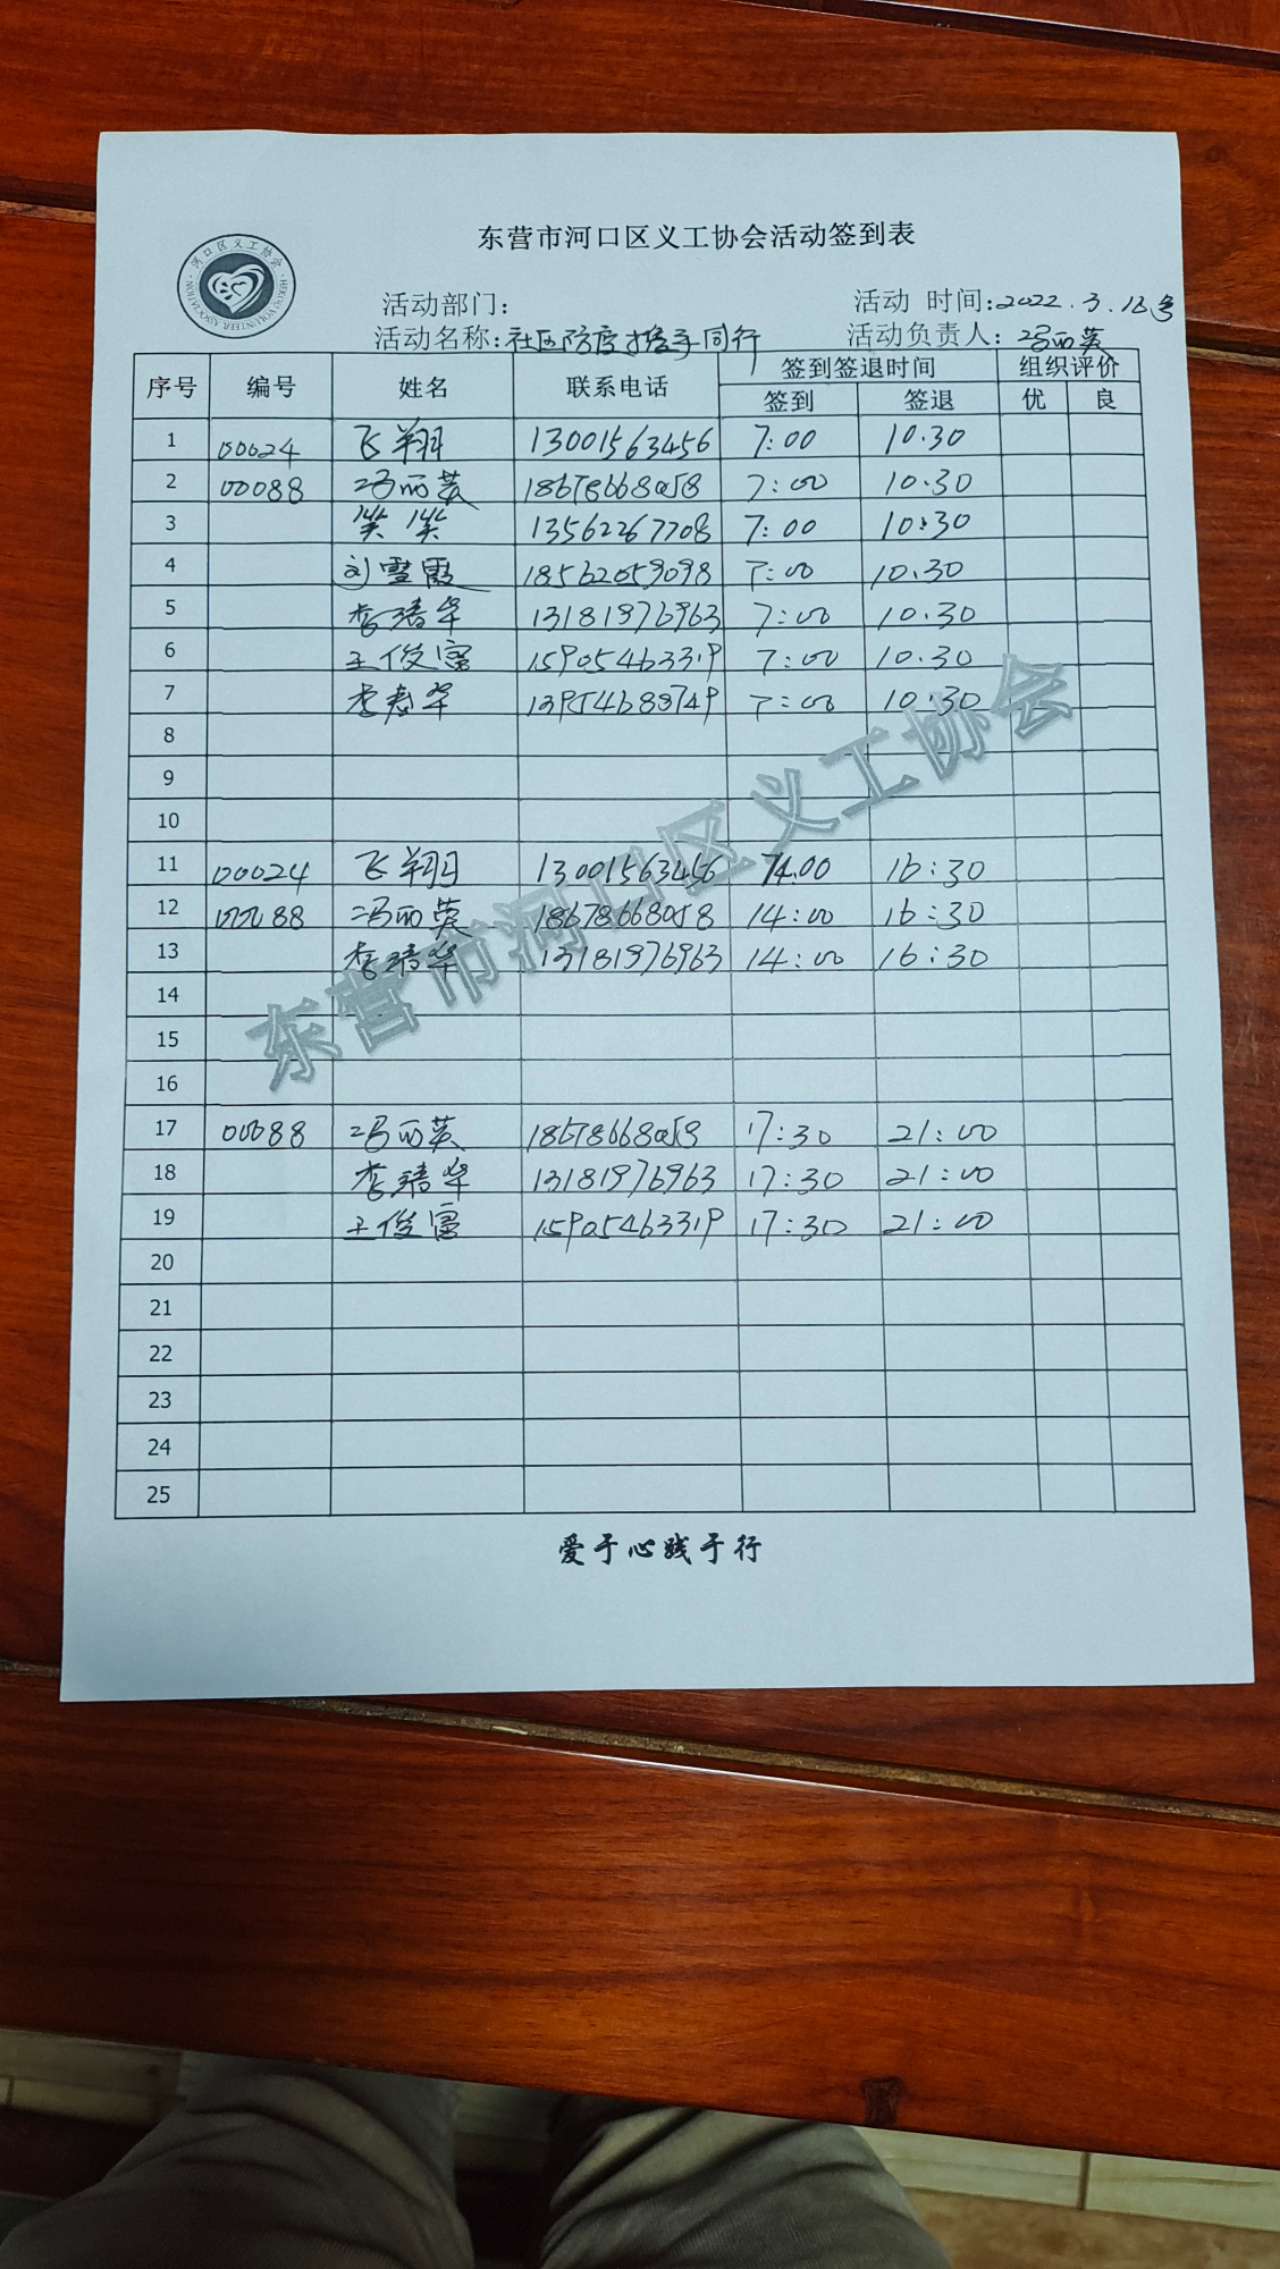 东营市河口区义工协会活动签到表
河口区义工协会
HEKOU VOLUNTEER ASSOCIATION
活动部门: 活动 时间:2022.3.18号
活动名称:社区防疫携手同行 活动负责人:冯丽英
序号 编号 姓名 联系电话 签到签退时间 组织评价
签到 签退 优 良
1 00024 飞翔 13001563456 7:00 10.30
2 00088 冯丽英 18678668058 7:00 10.30
3 笑笑 13562267708 7:00 10:30
4 刘雪霞 18562059098 7:00 10.30
5 李靖华 13181976963 7:00 10.30
6 王俊富 15905463319 7:00 10.30
7 李志华 7:00 10.30
8
9
10
11 00024 飞翔 13001563456 14.00 16:30
12 00088 冯丽英 18678668058 14:00 16:30
13 李靖华 13181976963 14:00 16:30
14
15
16
17 00088 冯丽英 18678668058 17:30 21:00
18 李靖华 13181976963 17:30 21:00
19 王俊富 15905463319 17:30 21:00
20
21
22
23
24
25
东营市河口区义工协会
爱于心践于行